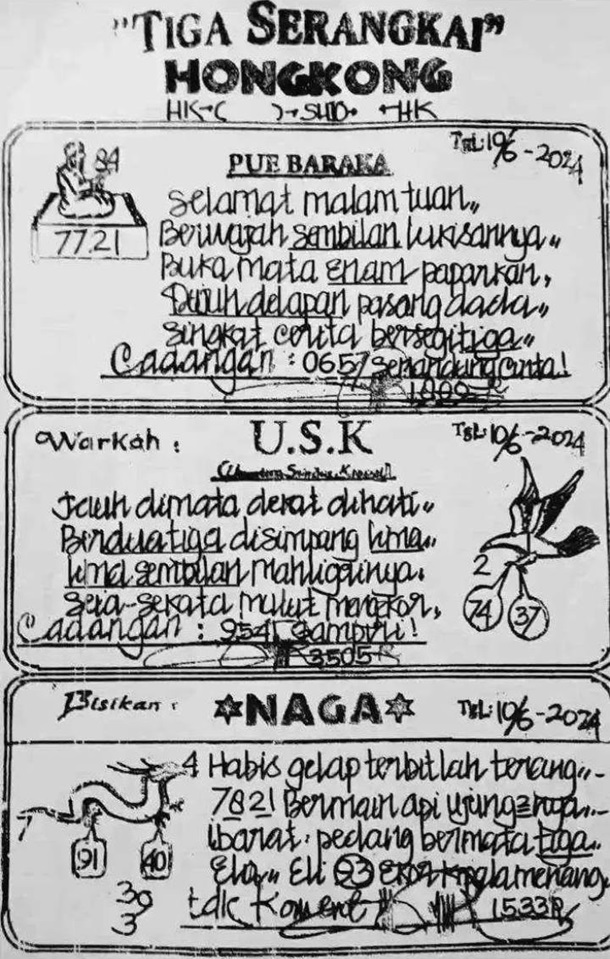 "TIGA SERANGKAI"
HONGKONG
HK→( )→SHIO→ →HK
84
77.21
PUE BARAKA
TGL:10/6-2024
Selamat malam tuan,,
Berwajah sembilan lukisannya,,
Buka mata enam paparkan,
delapan pasang dada,,
Singkat cerita bersegitiga,,
Cadangan : 0657 Senandung Cinta!
Warkah :
U.S.K
TGL:10/6-2024
Jauh dimata dekat dihati,,
Berdua tiga disimpang lima,,
Lima sembilan mahligainya.
Seia-sekata mulut
Cadangan : 954
3505
2
74
37
Bisikan :
NAGA
TGL:10/6-2024
4 Habis gelap terbitlah terang,,-
7821 Bermain api ujungnya,,-
Ibarat pedang bermata tiga,,
93 menang
tdk Koment
1533
7
91
40
39
3